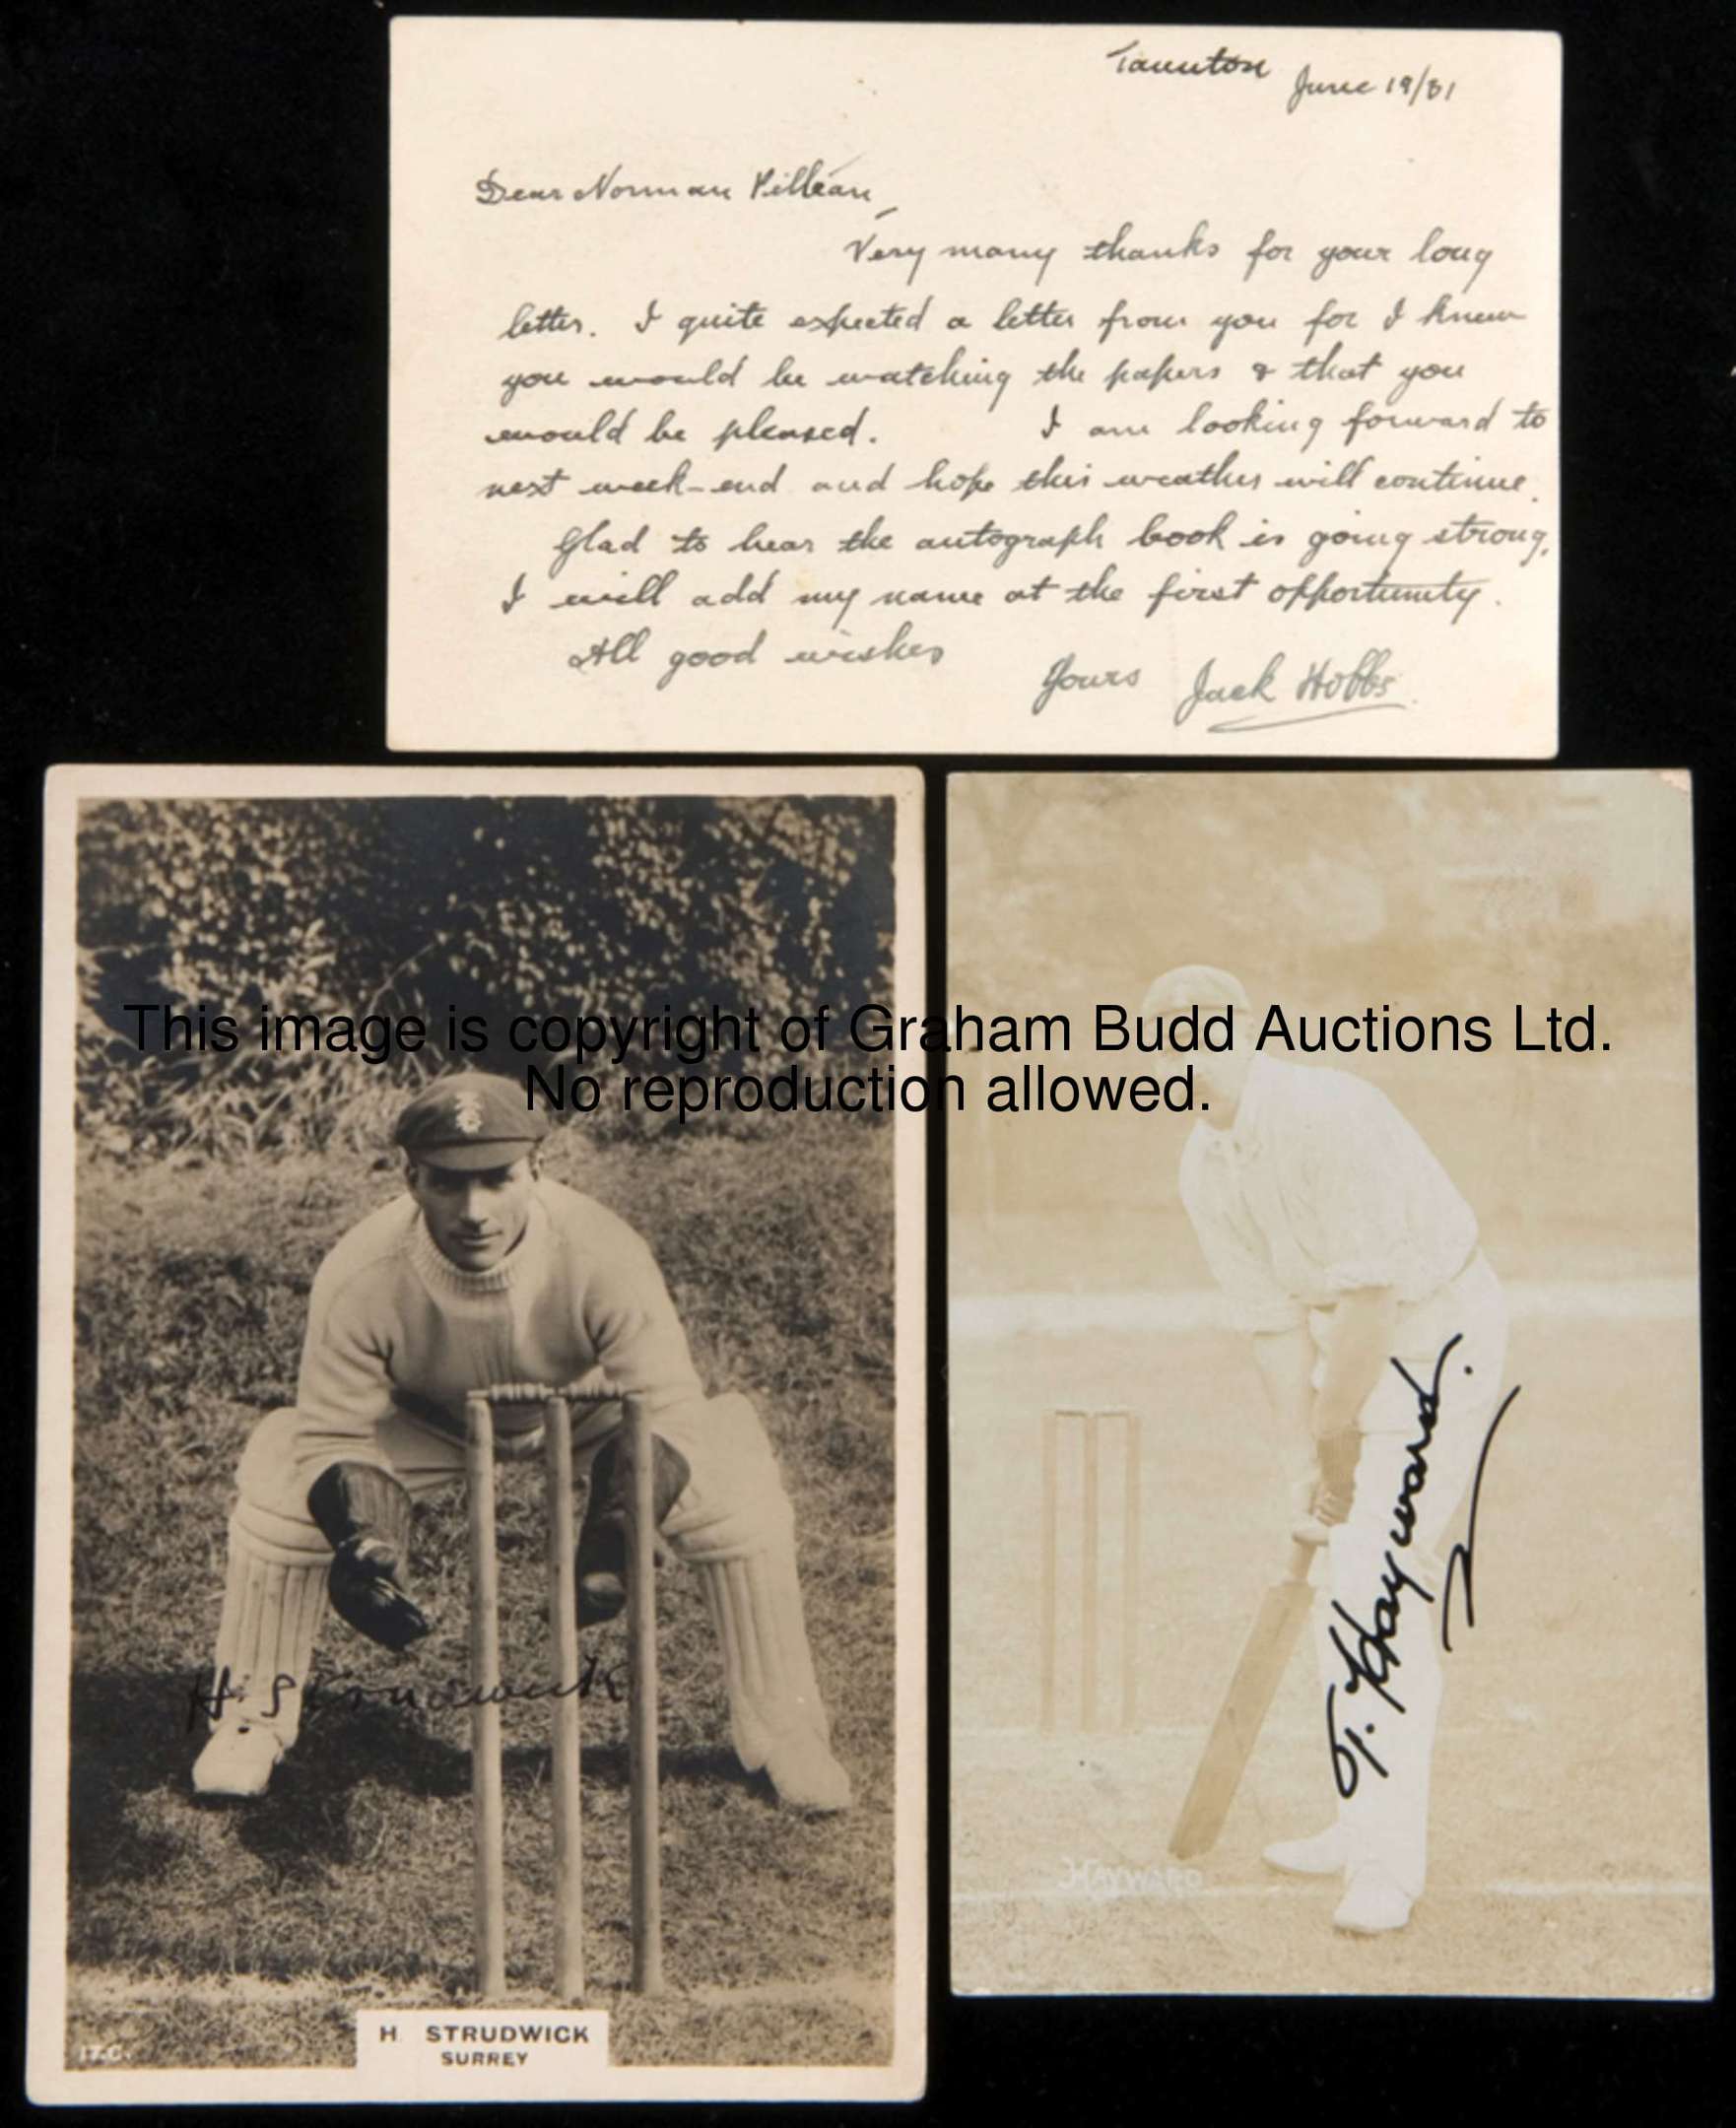 Taunton June 19/31
Dear Norman
Very many thanks for your long
letter. I quite expected a letter from you for I knew
you would be watching the papers & that you
would be pleased. I am looking forward to
next week-end and hope this weather will continue.
Glad to hear the autograph book is going strong,
I will add my name at the first opportunity.
All good wishes
Yours Jack Hobbs
This image is copyright of Graham Budd Auctions Ltd.
No reproduction allowed.
H. Strudwick
H STRUDWICK
SURREY
17.C.
T. Hayward.
HAYWARD